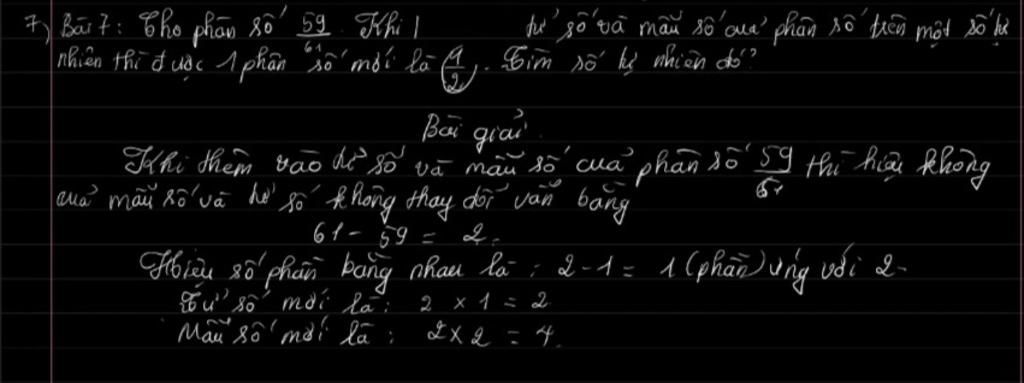 7) Bài 7: Cho phân số 59/61. Khi tử số và mẫu số của phân số trên một số tự
nhiên thì được 1 phân số mới là 1/2. Tìm số tự nhiên đó?
Bài giải
Khi thêm vào tử số và mẫu số của phân số 59/61 thì hiệu không
của mẫu số và tử số không thay đổi vẫn bằng
61 - 59 = 2.
Hiệu số phần bằng nhau là : 2 - 1 = 1 (phần) ứng với 2.
Tử số mới là: 2 x 1 = 2
Mẫu số mới là : 2 x 2 = 4.